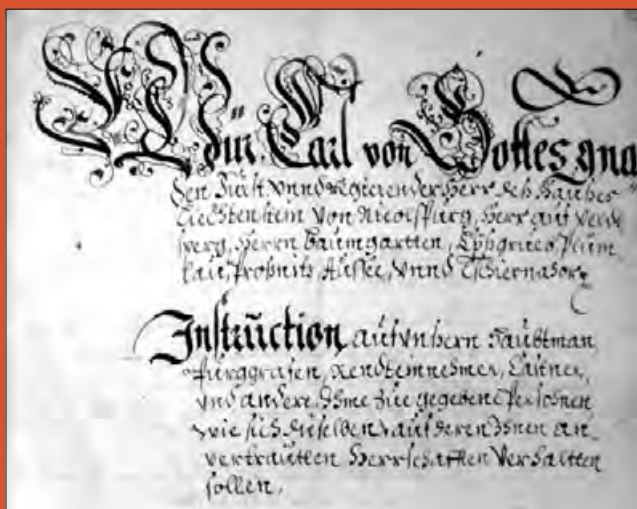 Wür Carl von Gottes gna
den Fürst unnd regierender Herr deß Haußes
Liechtenstein von Nicolspurg, Herr auf Veldt
sperg, Herrn Baumgartten, Eyßgrueb, Plum
lau, Proßnits, Aussee, unnd Tschiernahor
Instruction auf unßern Haubtman
Purggrafen, Rendteinnehmer, Casstner,
und andere Ihme zue gegebene Persohnen
wie sich dieselben, auf deren Ihnen an
vertrautten Herrschafften verhaltten
sollen.